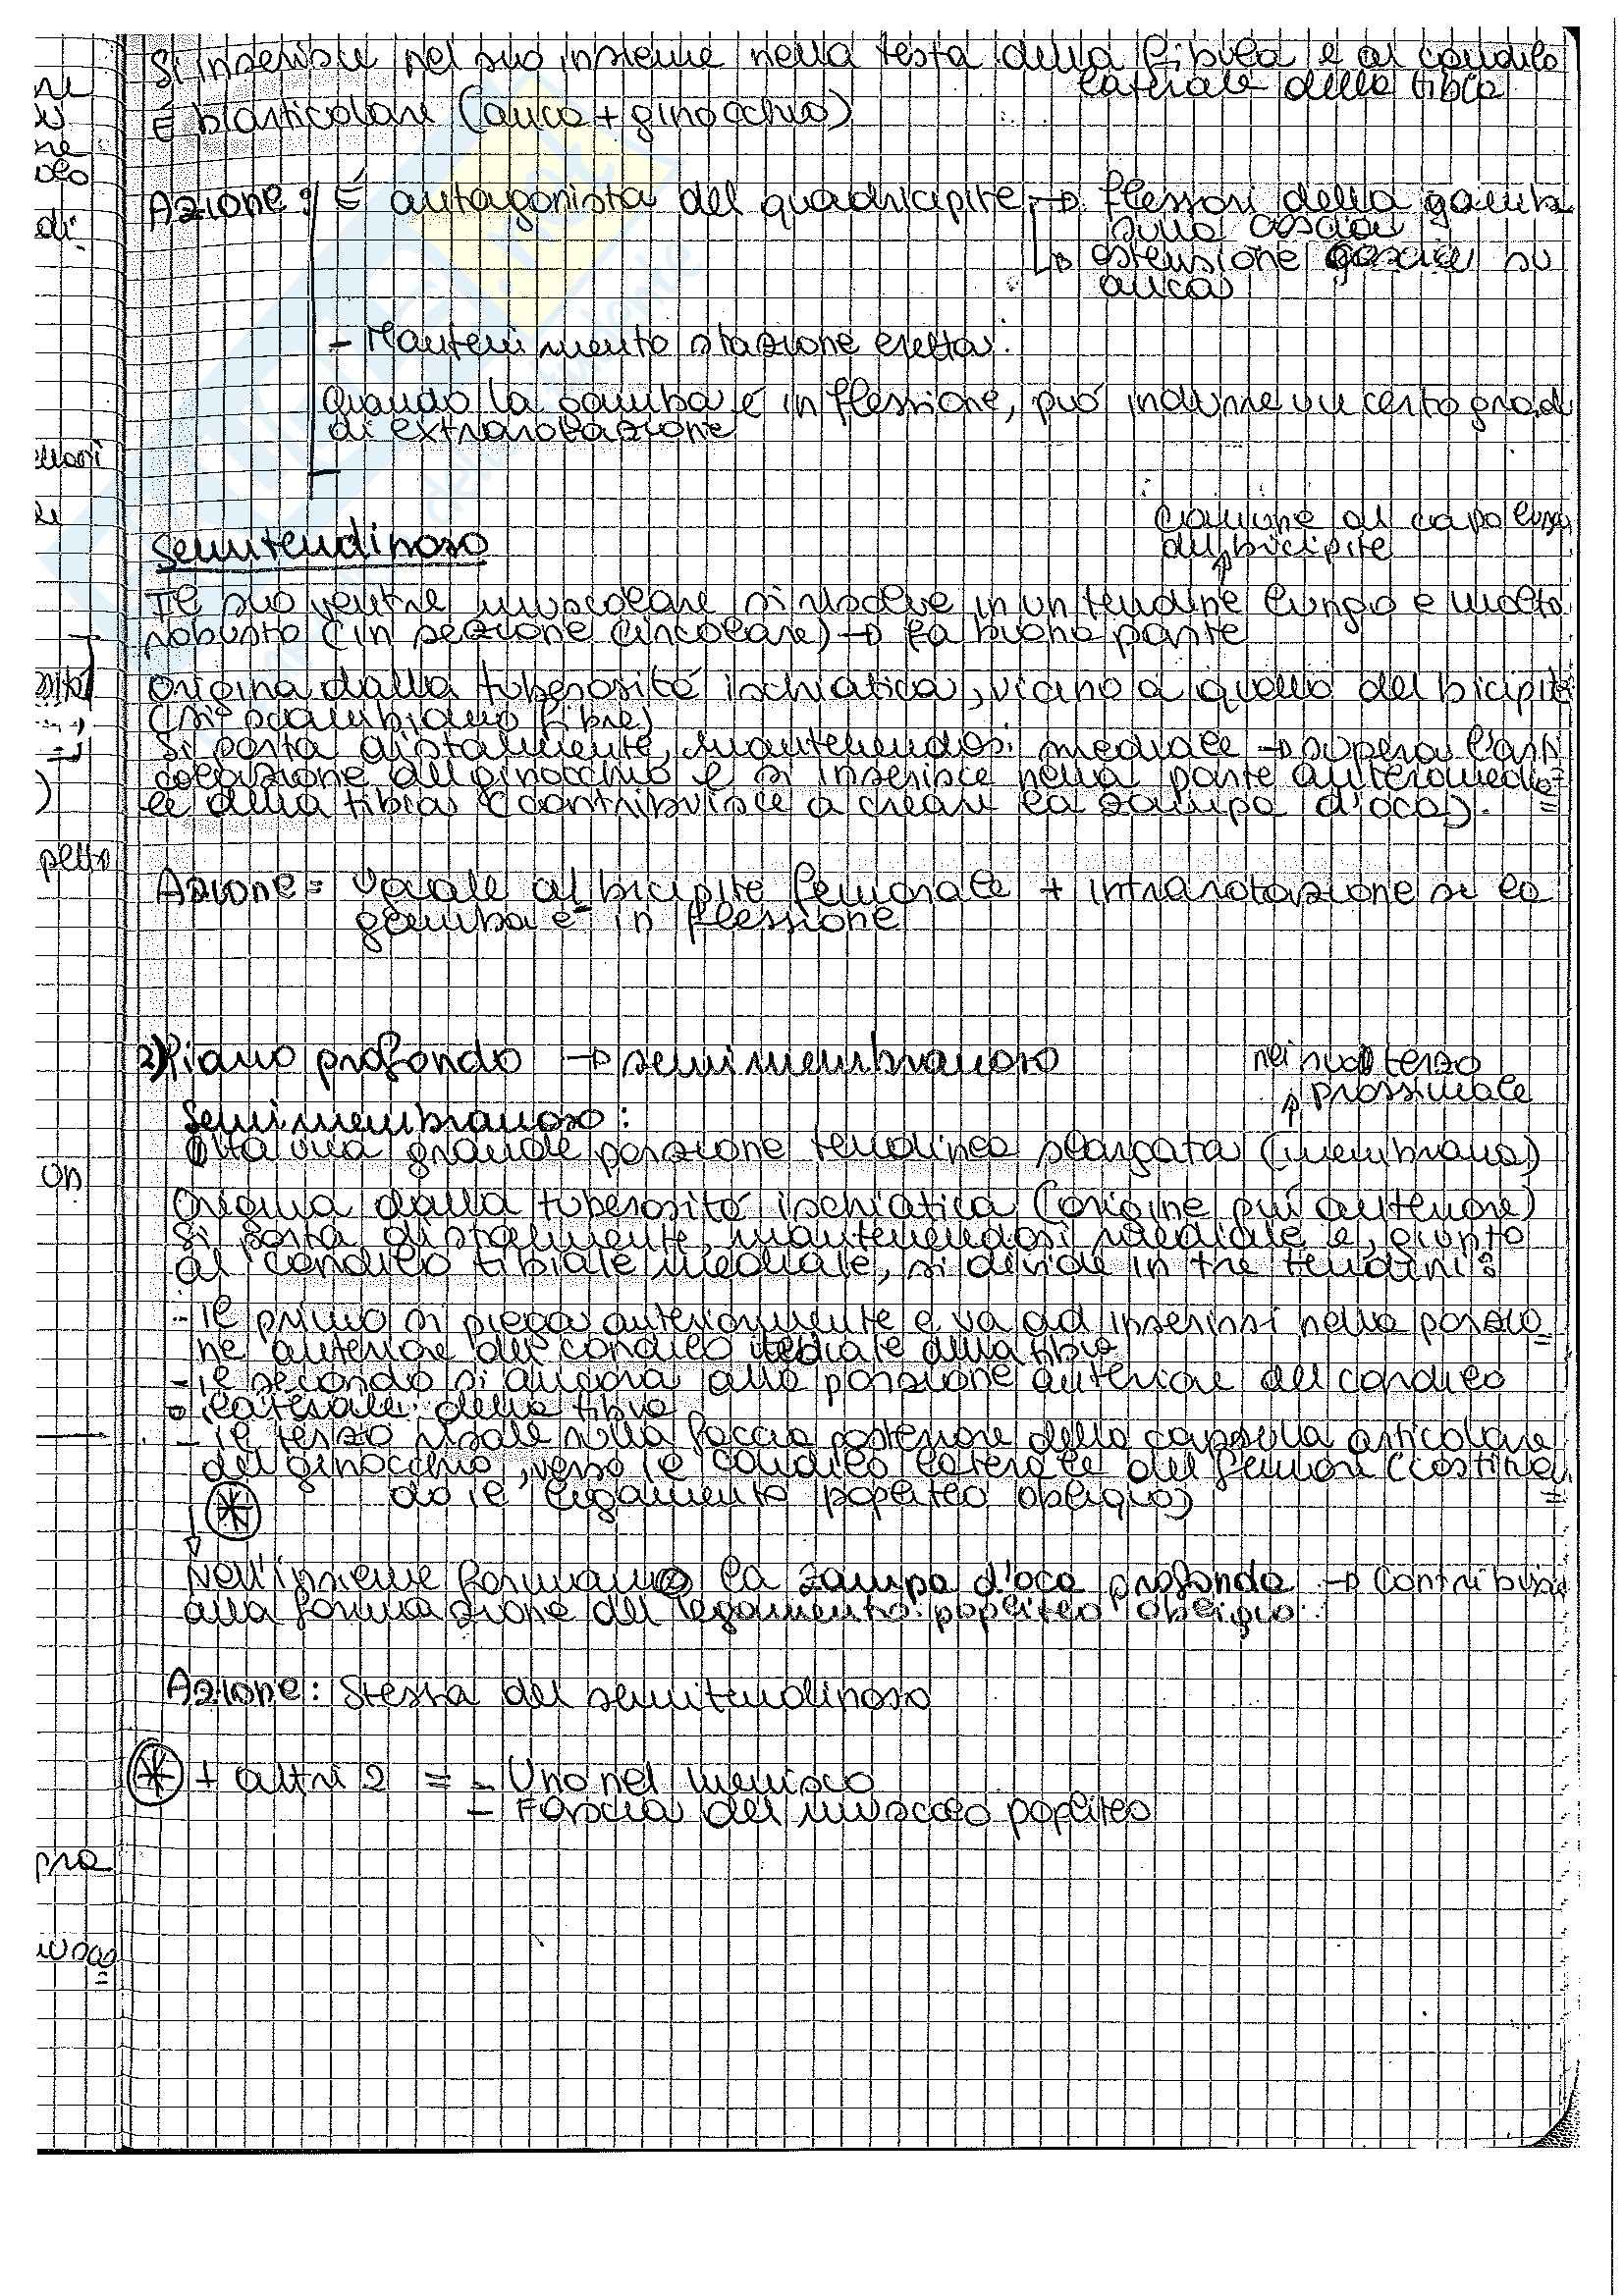 Si inserisce nel suo insieme nella testa della fibula e al condilo
laterale della tibia
É biarticolare (anca + ginocchio)
Azione: É antagonista del quadricipite → flessori della gamba
sulla coscia
↳ estensione coscia su
anca
- Mantenimento stazione eretta.
Quando la gamba é in flessione, puó indurre un certo grado
di extrarotazione
Semitendinoso
comune al capo lungo
del bicipite
Il suo ventre muscolare si risolve in un tendine lungo e molto
robusto (in sezione circolare) → fa buona parte
Origina dalla tuberositá ischiatica, vicino a quella del bicipite
(si scambiano fibre)
Si porta distalmente, mantenendosi mediale → supera l'arti
colazione del ginocchio e si inserisce nella parte anteromedia=
le della tibia (contribuisce a creare la zampa d'oca).
Azione = Uguale al bicipite femorale + intrarotazione se la
gamba é in flessione
2) Piano profondo → semimembranoso
nel suo terzo
prossimale
Semimembranoso:
Ha una grande porzione tendinea slargata (membrana)
Origina dalla tuberositá ischiatica (origine piú anteriore)
Si porta distalmente, mantenendosi mediale e, giunto
al condilo tibiale mediale, si divide in tre tendini:
- il primo si piega anteriormente e va ad inserirsi nella porzio=
ne anteriore del condilo mediale della tibia
- il secondo si ancora alla porzione anteriore del condilo
laterale della tibia
- il terzo risale sulla faccia posteriore della capsula articolare
del ginocchio, verso il condilo laterale del femore (costituen=
do il legamento popliteo obliquo)
Nell'insieme formano la zampa d'oca profonda → contribuisce
alla formazione del legamento popliteo obliquo.
Azione: Stessa del semitendinoso
* + altri 2 = - Uno nel menisco
- Fascia del muscolo popliteo